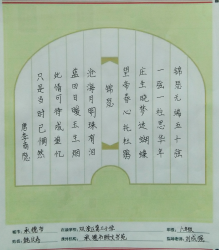 锦瑟无端五十弦
一弦一柱思华年
庄生晓梦迷蝴蝶
望帝春心托杜鹃
锦瑟
沧海月明珠有泪
蓝田日暖玉生烟
此情可待成追忆
只是当时已惘然
唐李商隐
承德市
年级：六年级
姓名：
指导老师：